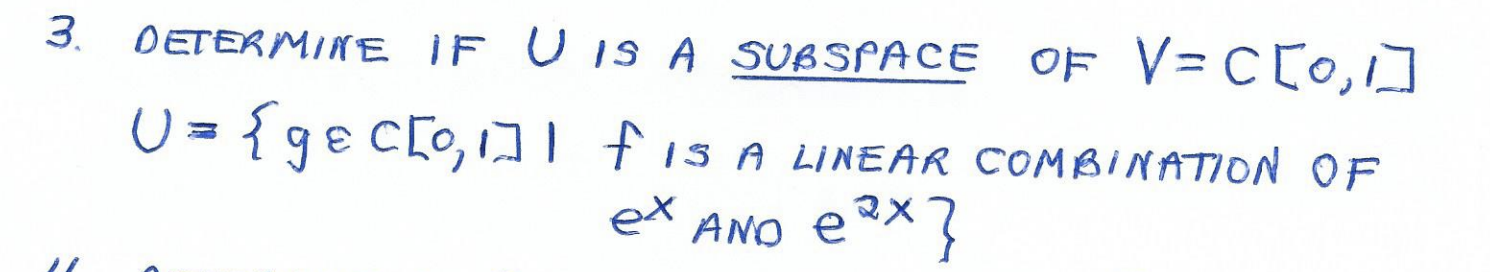 3. DETERMINE IF U IS A SUBSPACE OF V= C[0,1]
U = {g ε C[0,1] | f IS A LINEAR COMBINATION OF
eˣ AND e²ˣ}